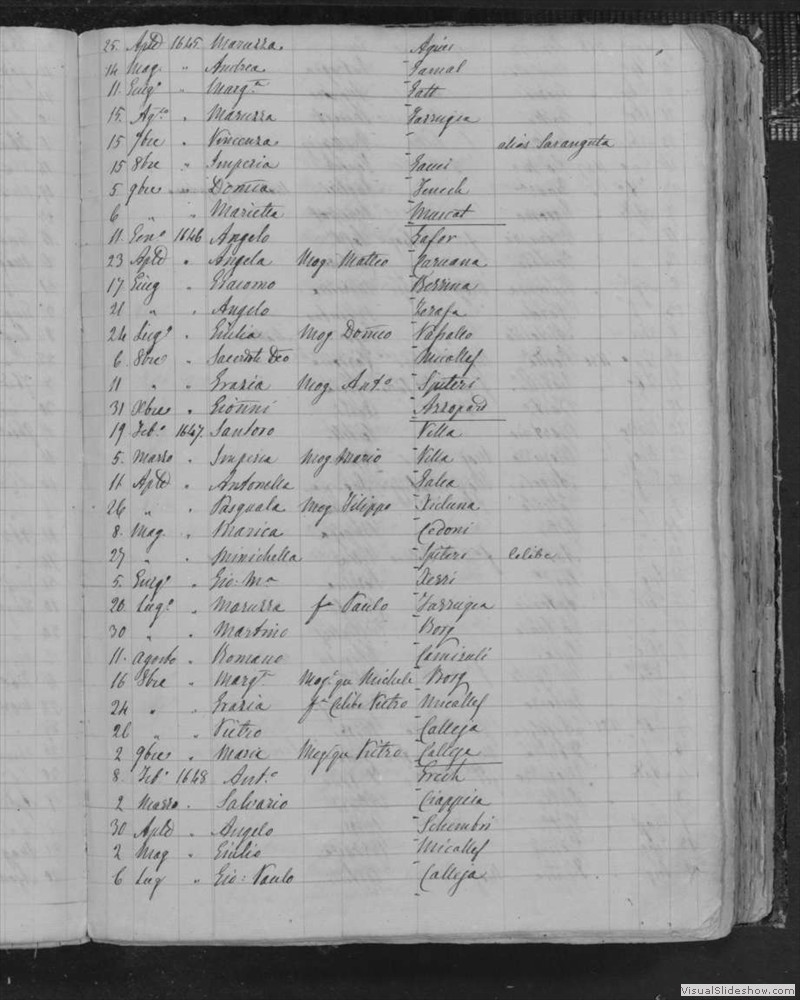 25 Aple 1645 Maruzza Agius
14 Mag " Andrea Gamal
11 Giug° " Marg.ta Gatt
15 Ag.to " Maruzza Farrugia
15 7bre " Vincenza alias Saranguta
15 8bre " Imperia Gauci
5 9bre " Domca Fenech
6 " " Marietta Muscat
11 Gen° 1646 Angelo Zafor
23 Aple " Angela Mog. Matteo Caruana
17 Giug " Giacomo " Bessina
21 " " Angelo Zerafa
24 Lug° " Giulia Mog Domco Vassallo
6 8bre " Sacerdote Deo " Micallef
11 " " Grazia Mog. Ant° Spiteri
31 Xbre " Gionni Azzopardi
19 Feb.° 1647 Santoro Villa
5 Marzo " Imperia Mog Mario Villa
11 Aple " Antonella Galea
26 " " Pasquala Mog Filippo Xicluna
8 Mag " Marica " Codoni
27 " " Minichella Spiteri Celibe
5 Giug° " Gio Ma Xerri
20 Lug° " Maruzza fa Paulo Farrugia
30 " " Martino Borg
11 agosto " Romano Camisuli
16 8bre " Marg.ta Mog. qm Micheli Borg
24 " " Grazia fa Celibe Pietro Micallef
26 " " Pietro Calleja
2 9bre " Maria Mog qm Pietro Calleja
8 Feb° 1648 Ant.° Grech
2 Marzo " Salvario Ciappisa
30 Aple " Angelo Schembri
2 Mag " Giulio Micallef
6 Lug " Gio: Paulo Calleja
VisualSlideshow.com